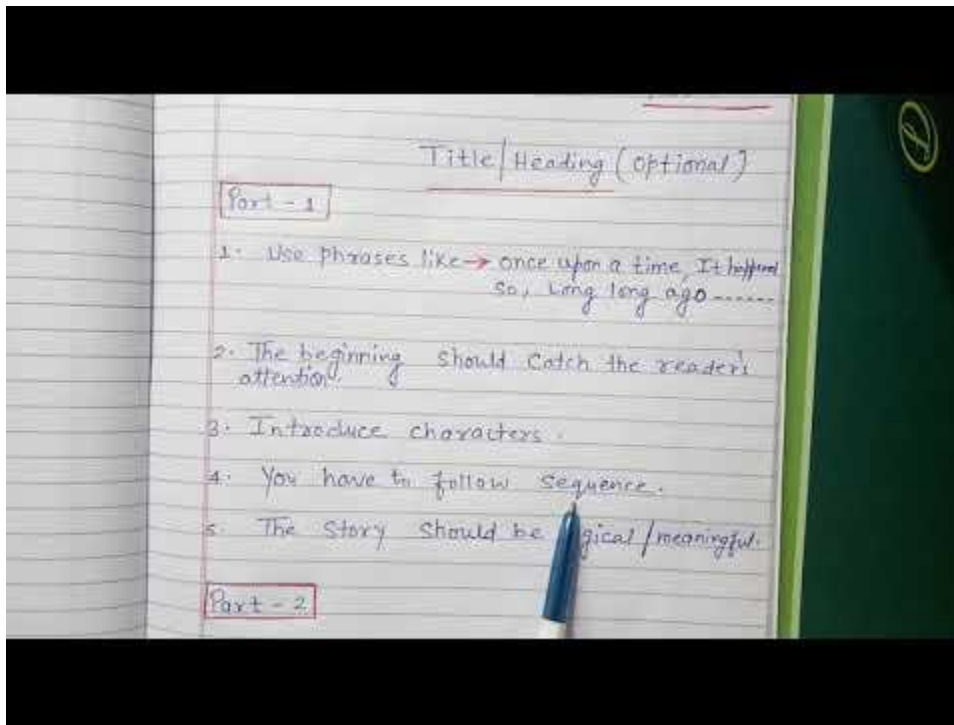 Title/Heading (optional)
Part - 1
1. Use phrases like → once upon a time, It happened
so, Long long ago ......
2. The beginning should Catch the reader's
attention.
3. Introduce characters.
4. You have to follow sequence.
5. The story should be gical/meaningful.
Part - 2